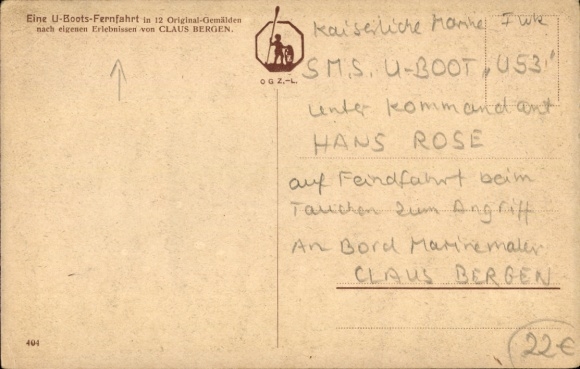 Eine U-Boots-Fernfahrt in 12 Original-Gemälden
nach eigenen Erlebnissen von CLAUS BERGEN.
O G Z.-L.
Kaiserliche Marine I WK
S.M.S. U-BOOT „U53"
unter Kommandant
HANS ROSE
auf Feindfahrt beim
Tauchen zum Angriff
An Bord Marinemaler
CLAUS BERGEN
404
22€